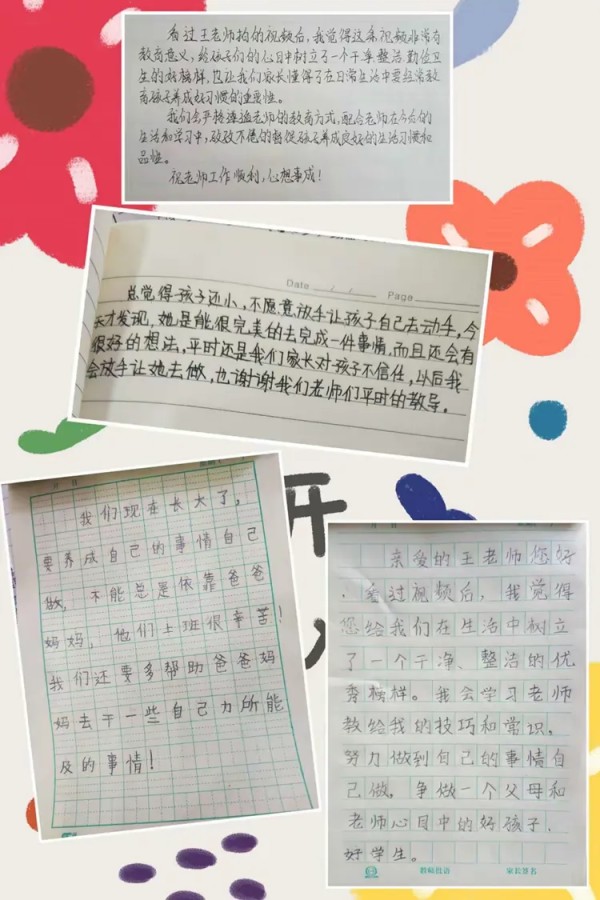 看过王老师拍的视频后，我觉得这条视频非常有
教育意义，给孩子们的心目中树立了一个干净、整洁、勤俭卫
生的好榜样，也让我们家长懂得了在日常生活中要经常教
育孩子养成好习惯的重要性。
我们会严格遵循老师的教育方式，配合老师在今后的
生活和学习中，孜孜不倦的督促孩子养成良好的生活习惯和
品性。
祝老师工作顺利，心想事成！
Date / / Page
总觉得孩子还小，不愿意放手让孩子自己去动手，今
天才发现，她是能很完美的去完成一件事情，而且还会有
很好的想法，平时还是我们家长对孩子不信任，以后我
会放手让她去做，也谢谢我们老师们平时的教导。
月 日
我们现在长大了，
要养成自己的事情自己
做，不能总是依靠爸爸
妈妈，他们上班很辛苦！
我们还要多帮助爸爸妈
妈去干一些自己力所能
及的事情！
开
月 日
亲爱的王老师您好
，看过视频后，我觉得
您给我们在生活中树立
了一个干净、整洁的优
秀榜样。我会学习老师
教给我的技巧和常识，
努力做到自己的事情自
己做。争做一个父母和
老师心目中的好孩子，
好学生。
教师批语 家长签名